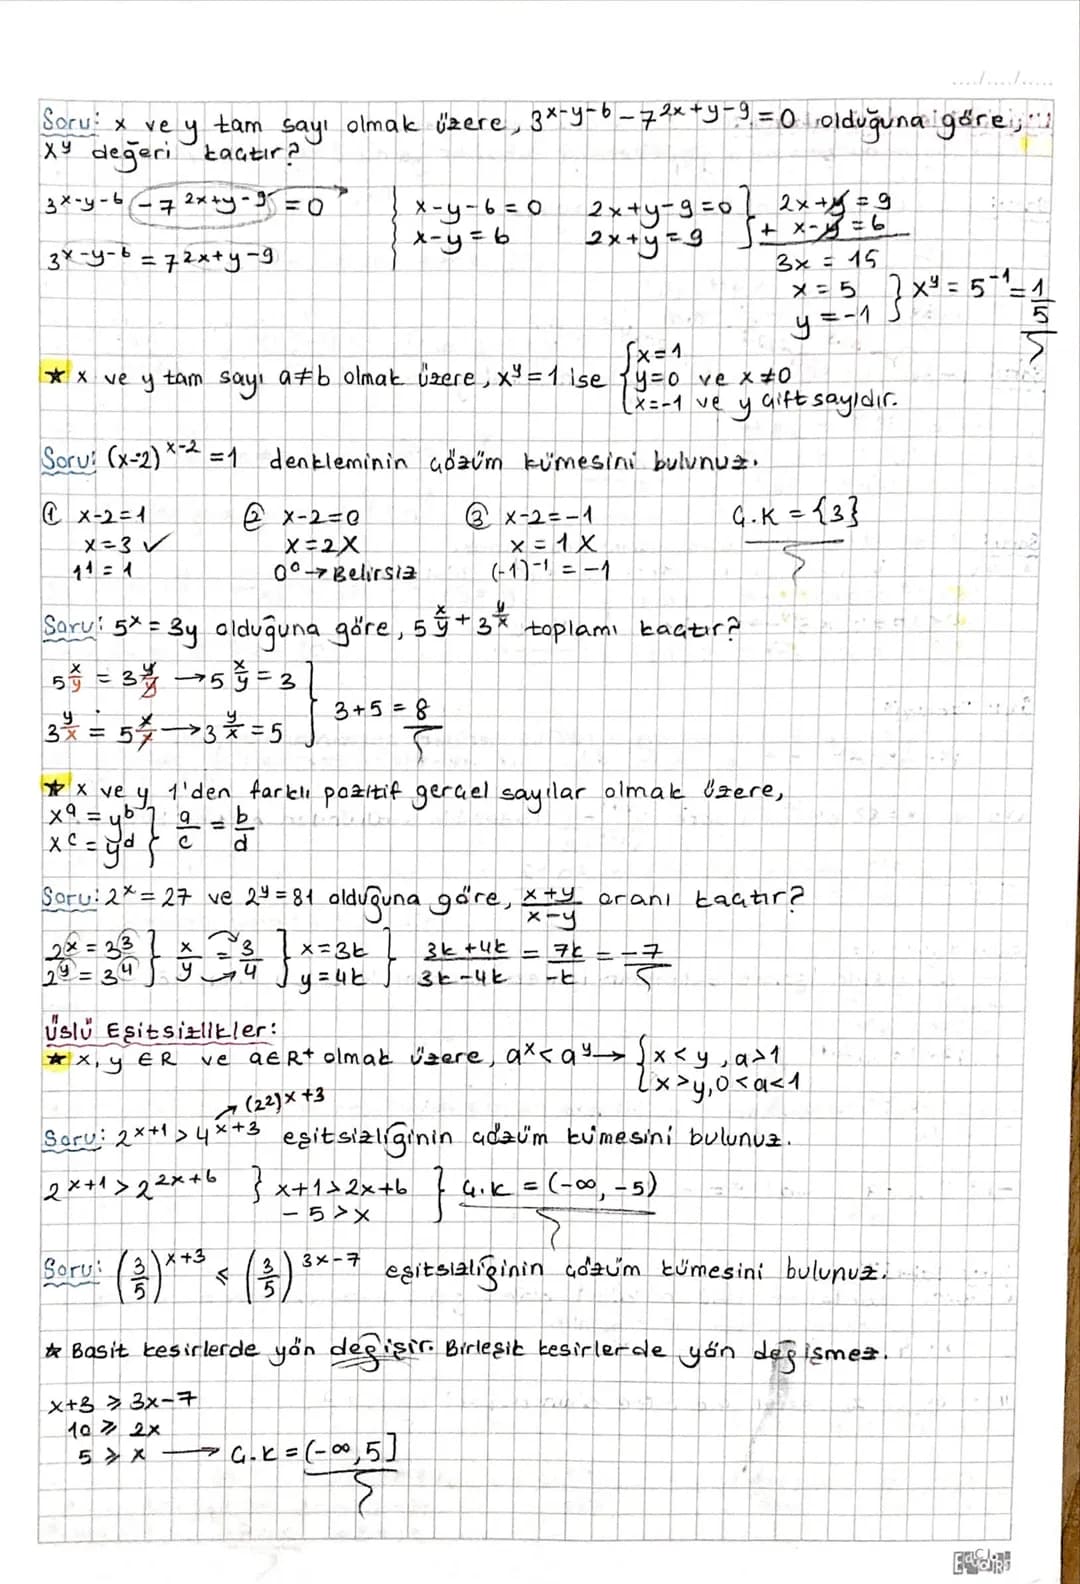 Soru: x ve y tam sayı olmak üzere, 3^x-y-6 - 7^2x+y-9 = 0 olduğuna göre,
x^y değeri kaçtır?
3^x-y-6 - 7^2x+y-9 = 0
3^x-y-6 = 7^2x+y-9
x-y-6=0
x-y=6
2x+y-9=0
2x+y=9
2x+y=9
+ x-y=6
3x = 15
x=5
y=-1
x^y = 5^-1 = 1/5
★ x ve y tam sayı a≠b olmak üzere, x^y=1 ise { x=1
y=0 ve x≠0
x=-1 ve y çift sayıdır.
Soru: (x-2)^x-2 = 1 denkleminin çözüm kümesini bulunuz.
① x-2=1
x=3 ✓
1^1=1
② x-2=0
x=2 X
0^0 → Belirsiz
③ x-2=-1
x=1 X
(-1)^-1 = -1
Ç.K = {3}
Soru: 5^x = 3y olduğuna göre, 5^x/y + 3^y/x toplamı kaçtır?
5^x/y = 3^y/y → 5^x/y = 3
3^y/x = 5^x/x → 3^y/x = 5
3+5 = 8
★ x ve y 1'den farklı pozitif gerçel sayılar olmak üzere,
x^a = y^b
x^c = y^d } a/c = b/d
Soru: 2^x = 27 ve 2^y = 81 olduğuna göre, x+y/x-y oranı kaçtır?
2^x = 3^3
2^y = 3^4 } x/y = 3/4 } x=3k
y=4k } 3k+4k/3k-4k = 7k/-k = -7
Üslü Eşitsizlikler:
★ x, y ∈ R ve a ∈ R+ olmak üzere, a^x < a^y → { x<y, a>1
x>y, 0<a<1
→ (22)^x+3
Soru: 2^x+1 > 4^x+3 eşitsizliğinin çözüm kümesini bulunuz.
2^x+1 > 2^2x+6 } x+1 > 2x+6
-5 > x } Ç.K = (-∞, -5)
Soru: (3/5)^x+3 ≤ (3/5)^3x-7 eşitsizliğinin çözüm kümesini bulunuz.
★ Basit kesirlerde yön değişir. Birleşik kesirlerde yön değişmez.
x+3 ≥ 3x-7
10 ≥ 2x
5 ≥ x → Ç.K = (-∞, 5]